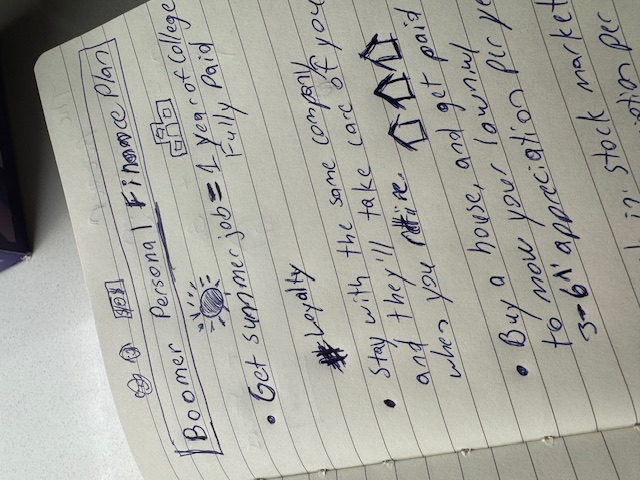 $0$
Boomer Personal Finance Plan
• Get summer job = 1 year of College
Fully Paid
# Loyalty
• Stay with the same company
and they'll take care of you
when you retire.
• Buy a house, and get paid
to mow your lawn w/
3-6% appreciation per
in stock market
per